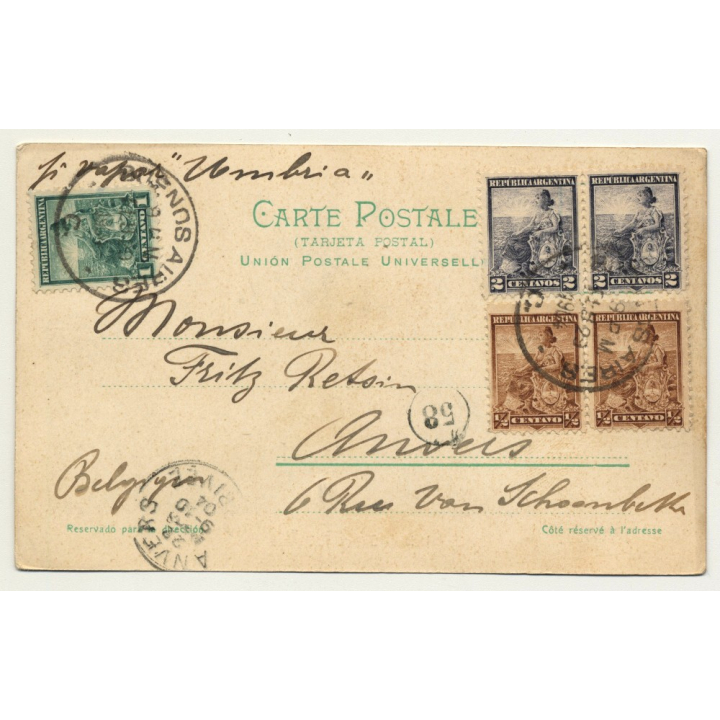 p vapor "Umbria"
REPÚBLICA ARGENTINA
1 CENTAVO 1
BUENOS AIRES
CARTE POSTALE
(TARJETA POSTAL)
UNIÓN POSTALE UNIVERSELL
REPÚBLICA ARGENTINA
2 CENTAVOS 2
REPÚBLICA ARGENTINA
2 CENTAVOS 2
REPÚBLICA ARGENTINA
½ CENTAVO ½
REPÚBLICA ARGENTINA
½ CENTAVO ½
S AIRES
Monsieur
Fritz Retsin
58
Anvers
Belgique
6 Rue Van Schoonbeke
ANVERS
ARRIVÉE
Reservado para la dirección
Côté réservé à l'adresse